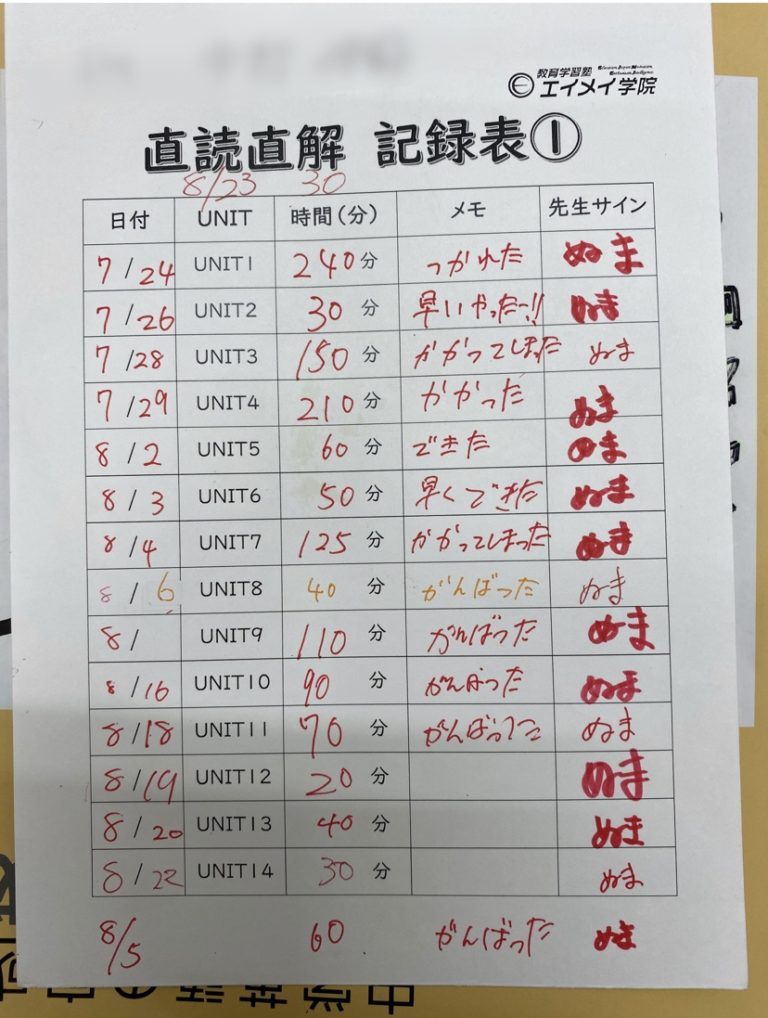 教育学習塾
エイメイ学院
直読直解 記録表①
8/23 30
日付 UNIT 時間(分) メモ 先生サイン
7/24 UNIT1 240分 つかれた ぬま
7/26 UNIT2 30分 早いやったー!! ぬま
7/28 UNIT3 150分 かかってしまった ぬま
7/29 UNIT4 210分 かかった ぬま
8/2 UNIT5 60分 できた ぬま
8/3 UNIT6 50分 早くできた ぬま
8/4 UNIT7 125分 かかってしまった ぬま
8/6 UNIT8 40分 がんばった ぬま
8/ UNIT9 110分 がんばった ぬま
8/16 UNIT10 90分 がんばった ぬま
8/18 UNIT11 70分 がんばった ぬま
8/19 UNIT12 20分 ぬま
8/20 UNIT13 40分 ぬま
8/22 UNIT14 30分 ぬま
8/5 60 がんばった ぬま